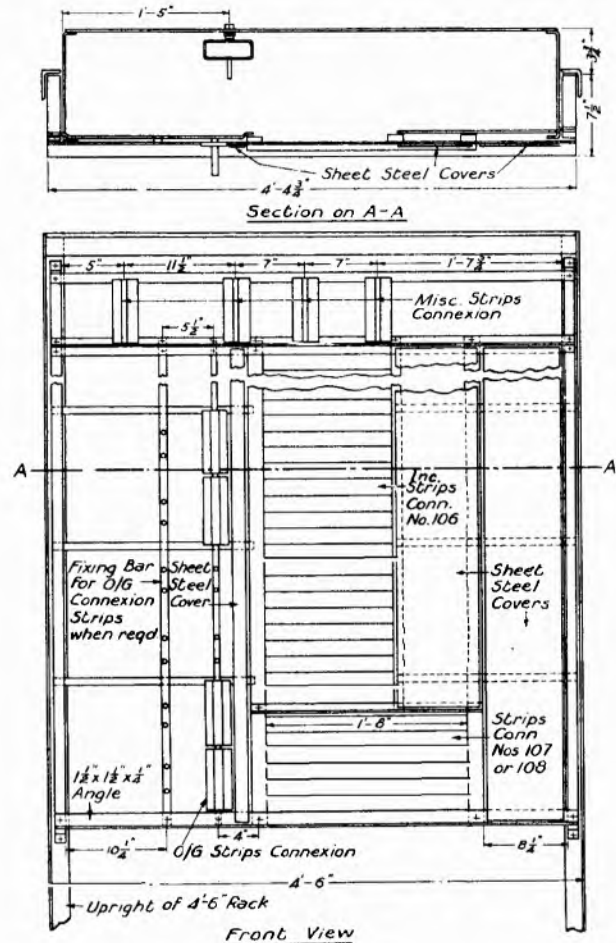 1'-5"
3 1/4"
7 1/2"
Sheet Steel Covers
4'-4 3/4"
Section on A-A
5"
11 1/2"
7"
7"
1'-7 3/4"
Misc. Strips
Connexion
5 1/2"
A
A
Inc.
Strips
Conn.
No.106
Fixing Bar
For O/G
Connexion
Strips
when reqd
Sheet
Steel
Cover
Sheet
Steel
Covers
1'-8"
Strips
Conn
Nos 107
or 108
1 1/2" x 1 1/2" x 1/4"
Angle
4"
10 1/4"
O/G Strips Connexion
8 1/4"
4'-6"
Upright of 4'-6" Rack
Front View